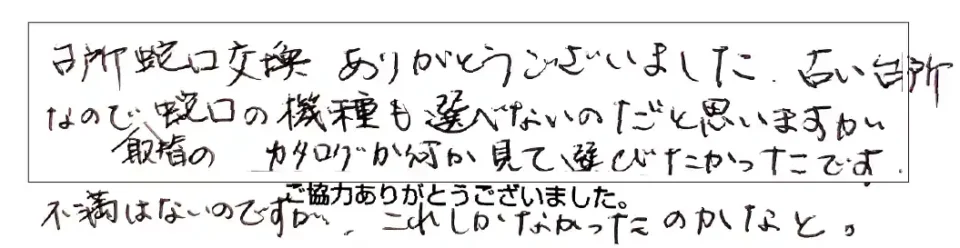 台所蛇口交換 ありがとうございました。古い台所
なので、蛇口の機種も選べないのだと思いますが
取替の カタログか何か見て、選びたかったです。
ご協力ありがとうございました。
不満はないのですが、これしかなかったのかなと。